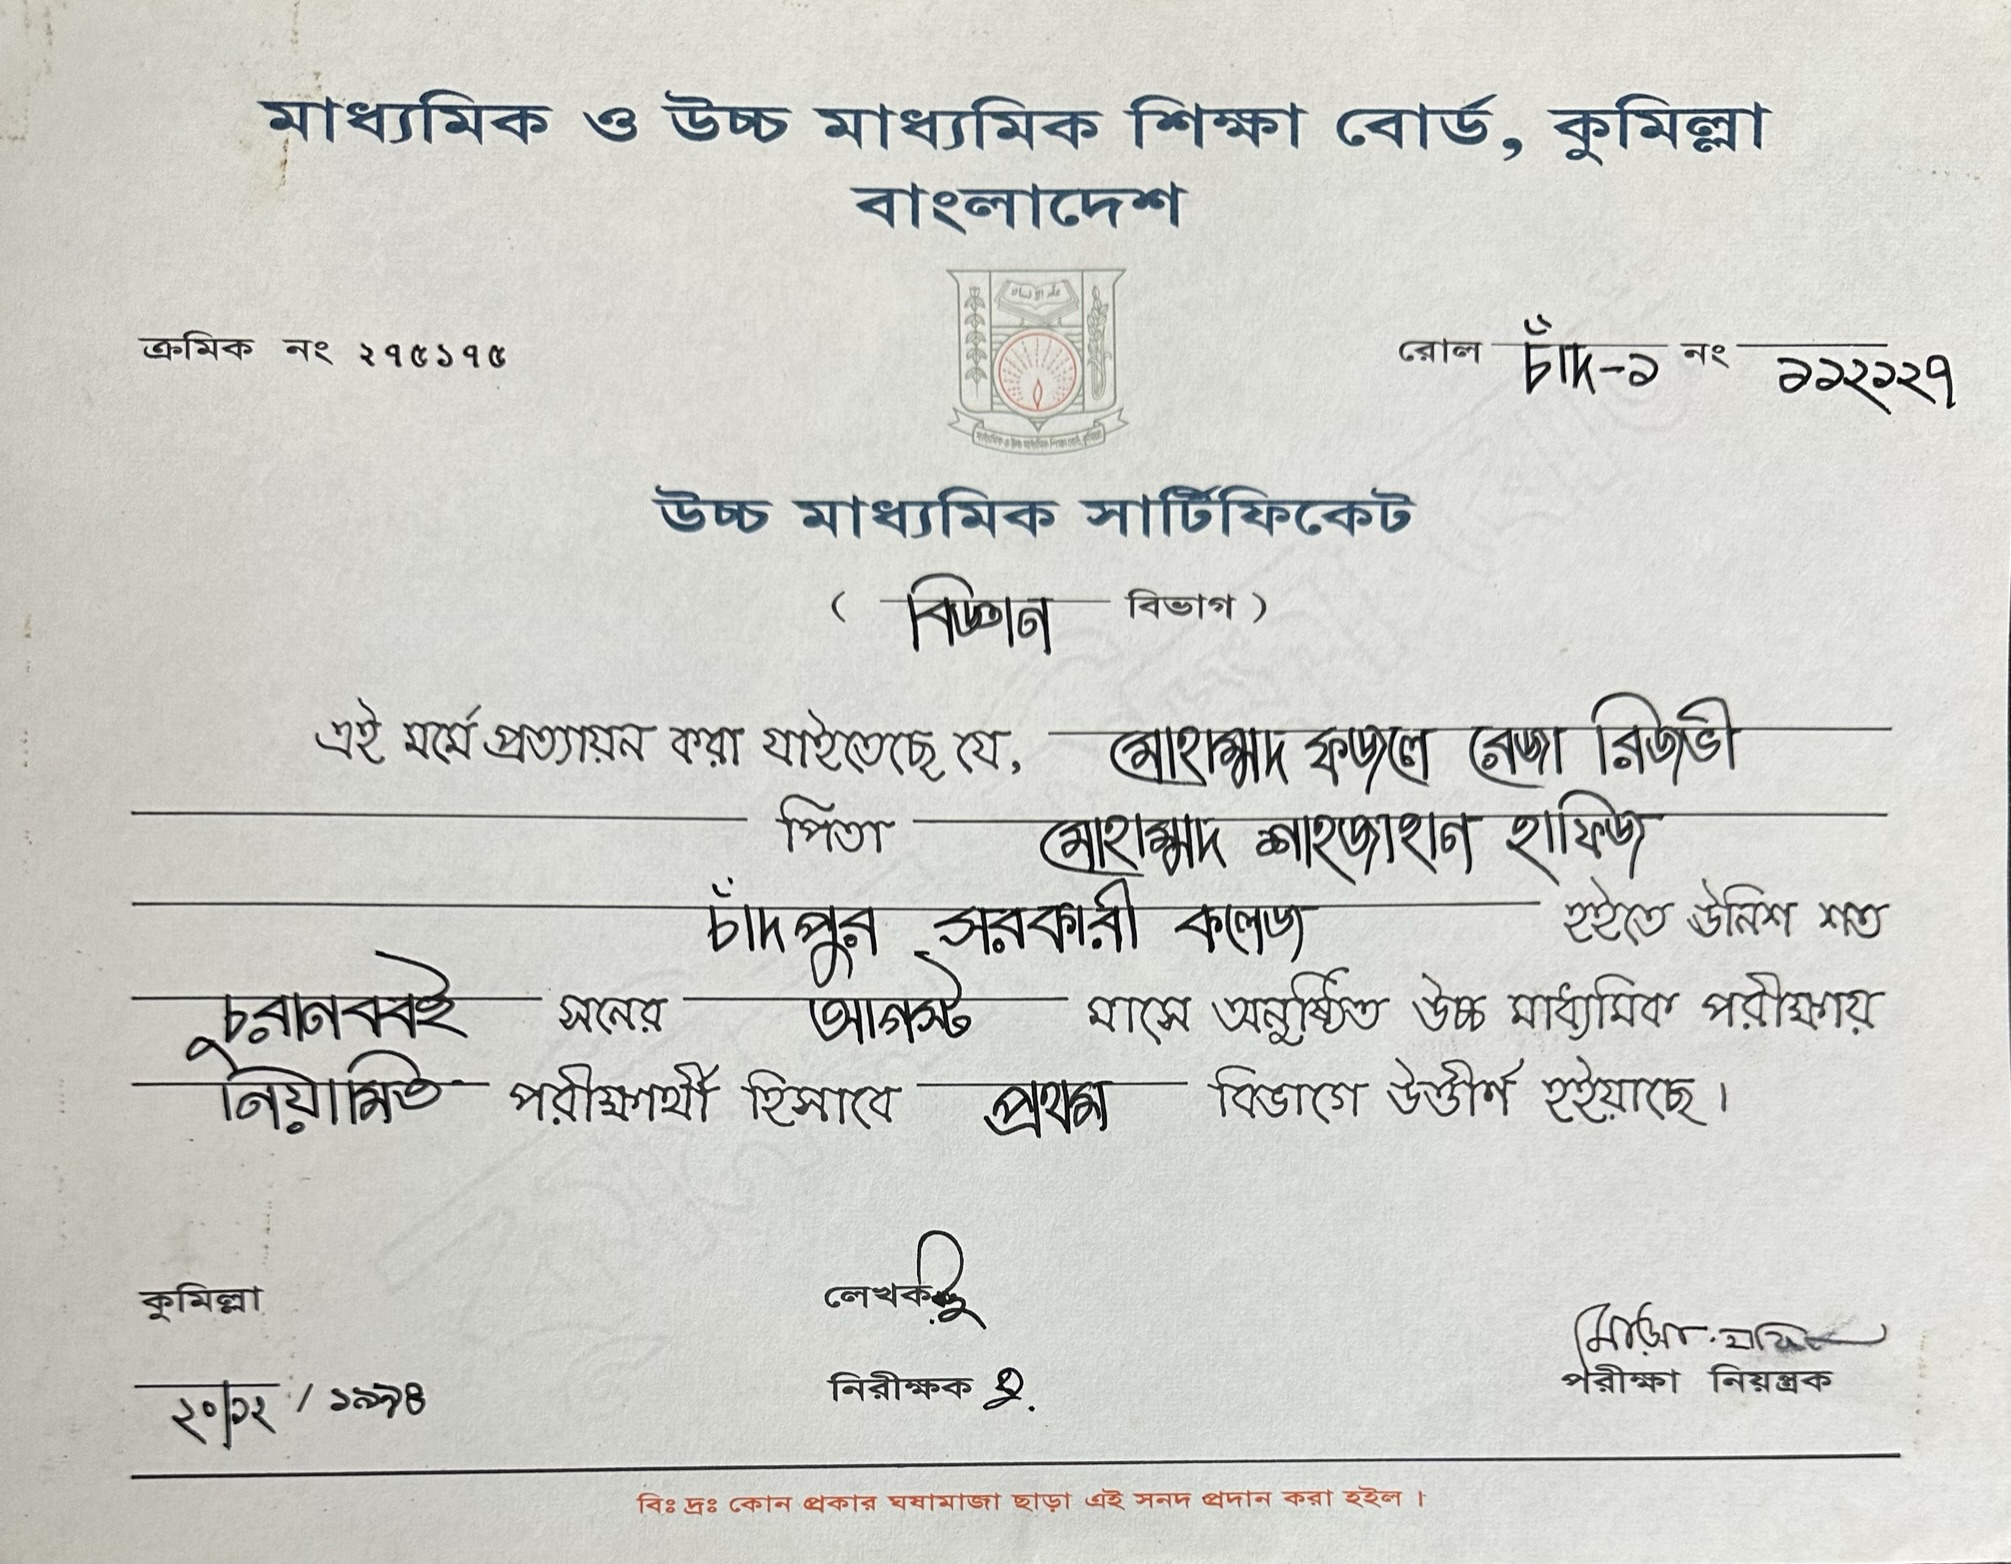 মাধ্যমিক ও উচ্চ মাধ্যমিক শিক্ষা বোর্ড, কুমিল্লা
বাংলাদেশ
ক্রমিক নং ২৭৫১৭৫
রোল চাঁদ-১ নং ১১২১২৭
উচ্চ মাধ্যমিক সার্টিফিকেট
( বিজ্ঞান বিভাগ )
এই মর্মে প্রত্যায়ন করা যাইতেছে যে, মোহাম্মদ ফজলে রেজা রিজভী
পিতা মোহাম্মদ শাহজাহান হাফিজ
চাঁদপুর সরকারী কলেজ হইতে উনিশ শত
চুরানববই সনের আগস্ট মাসে অনুষ্ঠিত উচ্চ মাধ্যমিক পরীক্ষায়
নিয়মিত পরীক্ষার্থী হিসাবে প্রথম বিভাগে উত্তীর্ণ হইয়াছে।
কুমিল্লা
লেখক
নিরীক্ষক
পরীক্ষা নিয়ন্ত্রক
২০/১২/১৯৯৪
বিঃ দ্রঃ কোন প্রকার ঘষামাজা ছাড়া এই সনদ প্রদান করা হইল।